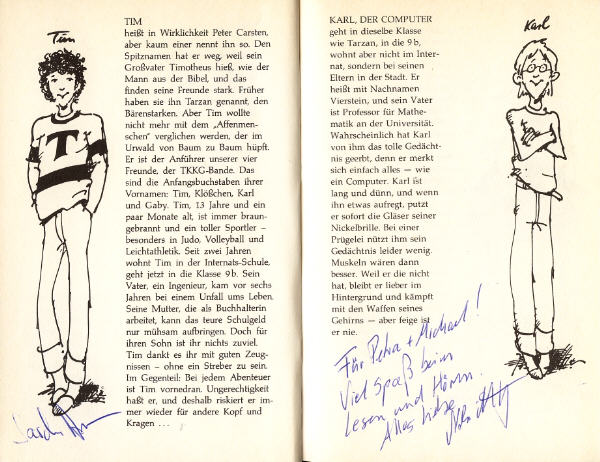 Tim
TIM
heißt in Wirklichkeit Peter Carsten,
aber kaum einer nennt ihn so. Den
Spitznamen hat er weg, weil sein
Großvater Timotheus hieß, wie der
Mann aus der Bibel, und das
finden seine Freunde stark. Früher
haben sie ihn Tarzan genannt, den
Bärenstarken. Aber Tim wollte
nicht mehr mit dem „Affenmen-
schen" verglichen werden, der im
Urwald von Baum zu Baum hüpft.
Er ist der Anführer unserer vier
Freunde, der TKKG-Bande. Das
sind die Anfangsbuchstaben ihrer
Vornamen: Tim, Klößchen, Karl
und Gaby. Tim, 13 Jahre und ein
paar Monate alt, ist immer braun-
gebrannt und ein toller Sportler –
besonders in Judo, Volleyball und
Leichtathletik. Seit zwei Jahren
wohnt Tim in der Internats-Schule,
geht jetzt in die Klasse 9 b. Sein
Vater, ein Ingenieur, kam vor sechs
Jahren bei einem Unfall ums Leben.
Seine Mutter, die als Buchhalterin
arbeitet, kann das teure Schulgeld
nur mühsam aufbringen. Doch für
ihren Sohn ist ihr nichts zuviel.
Tim dankt es ihr mit guten Zeug-
nissen – ohne ein Streber zu sein.
Im Gegenteil: Bei jedem Abenteuer
ist Tim vornedran. Ungerechtigkeit
haßt er, und deshalb riskiert er im-
mer wieder für andere Kopf und
Kragen . . .
T
KARL, DER COMPUTER
geht in dieselbe Klasse
wie Tarzan, in die 9 b,
wohnt aber nicht im Inter-
nat, sondern bei seinen
Eltern in der Stadt. Er
heißt mit Nachnamen
Vierstein, und sein Vater
ist Professor für Mathe-
matik an der Universität.
Wahrscheinlich hat Karl
von ihm das tolle Gedächt-
nis geerbt, denn er merkt
sich einfach alles — wie
ein Computer. Karl ist
lang und dünn, und wenn
ihn etwas aufregt, putzt
er sofort die Gläser seiner
Nickelbrille. Bei einer
Prügelei nützt ihm sein
Gedächtnis leider wenig.
Muskeln wären dann
besser. Weil er die nicht
hat, bleibt er lieber im
Hintergrund und kämpft
mit den Waffen seines
Gehirns — aber feige ist
er nie.
Karl
Für Petra + Michael!
Viel Spaß beim
Lesen und Hören.
Alles Liebe